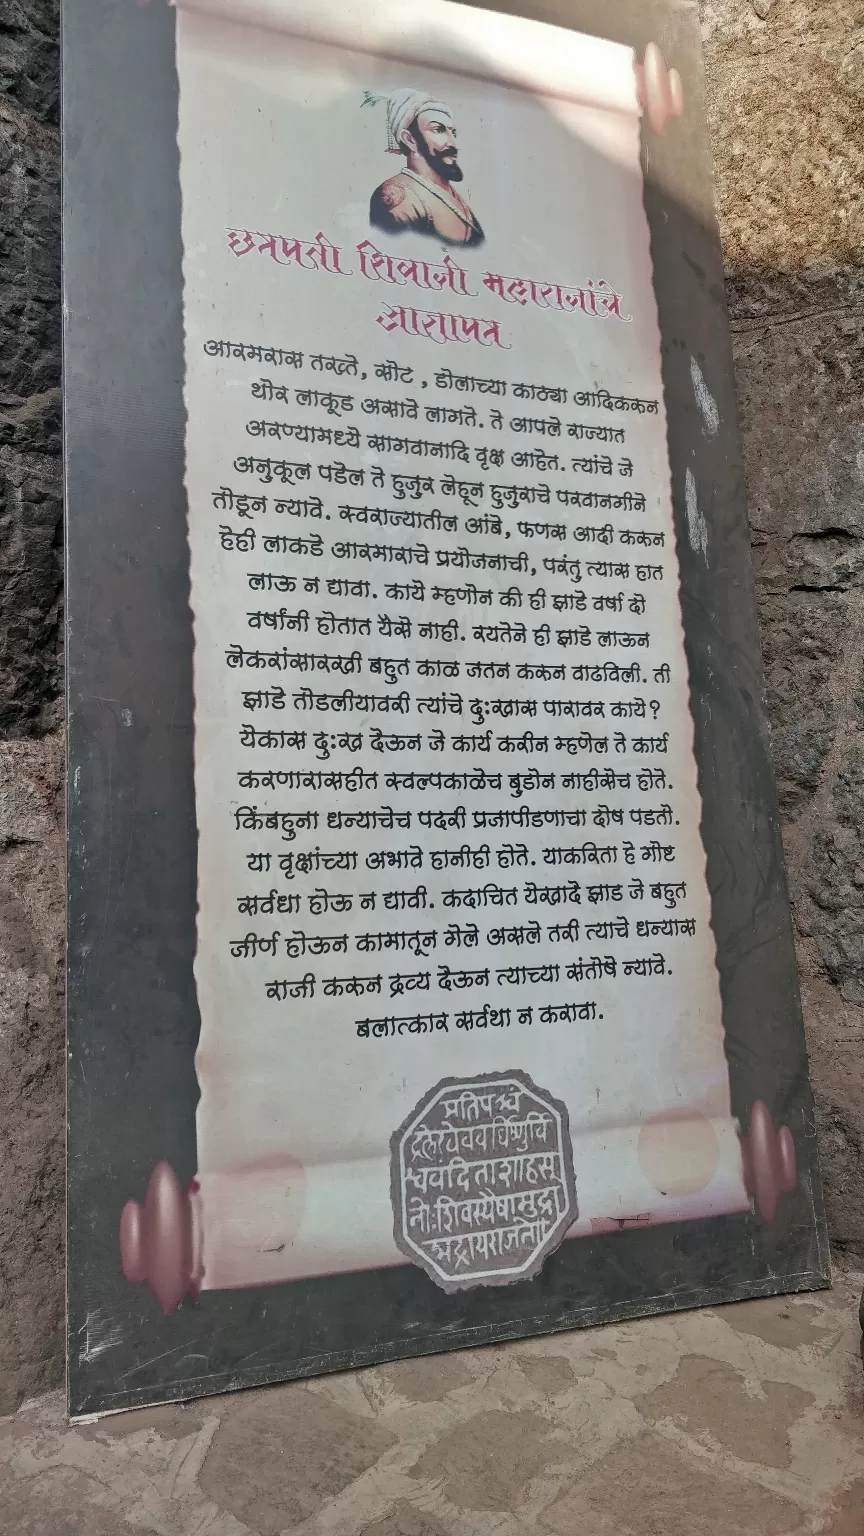 छत्रपती शिवाजी महाराजांचे
आज्ञापत्र
आरमारास तख्ते, सोट , डोलाच्या काठ्या आदिकरुन
थोर लाकूड असावे लागते. ते आपले राज्यात
अरण्यामध्ये सागवानादि वृक्ष आहेत. त्यांचे जे
अनुकूल पडेल ते हुजुर लेहून हुजुराचे परवानगीने
तोडून न्यावे. स्वराज्यातील आंबे, फणस आदी करुन
हेही लाकडे आरमाराचे प्रयोजनाची, परंतु त्यास हात
लाऊ न द्यावा. काये म्हणोन की ही झाडे वर्षा दो
वर्षांनी होतात यैसे नाही. रयतेने ही झाडे लाऊन
लेकरांसारखी बहुत काळ जतन करुन वाढविली. ती
झाडे तोडलीयावरी त्यांचे दुःखास पारावर काये?
येकास दुःख देऊन जे कार्य करीन म्हणेल ते कार्य
करणारासहीत स्वल्पकाळेच बुडोन नाहीसेच होते.
किंबहुना धन्याचेच पदरी प्रजापीडणाचा दोष पडतो.
या वृक्षांच्या अभावे हानीही होते. याकरिता हे गोष्ट
सर्वधा होऊ न द्यावी. कदाचित येखादे झाड जे बहुत
जीर्ण होऊन कामातून गेले असले तरी त्याचे धन्यास
राजी करुन द्रव्य देऊन त्याच्या संतोषे न्यावे.
बलात्कार सर्वथा न करावा.
प्रतिपच्चं
द्रलेखेववर्धिष्णुर्वि
श्ववंदिताशाहसू
नोःशिवस्यैषामुद्रा
भद्रायराजते